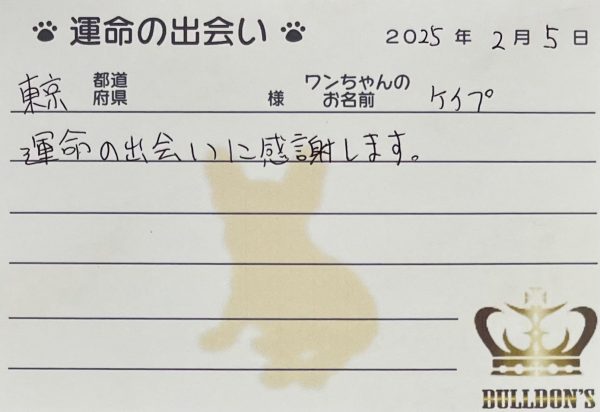 運命の出会い
2025年2月5日
東京 都道府県 様 ワンちゃんのお名前 ケイプ
運命の出会いに感謝します。
BULLDON'S